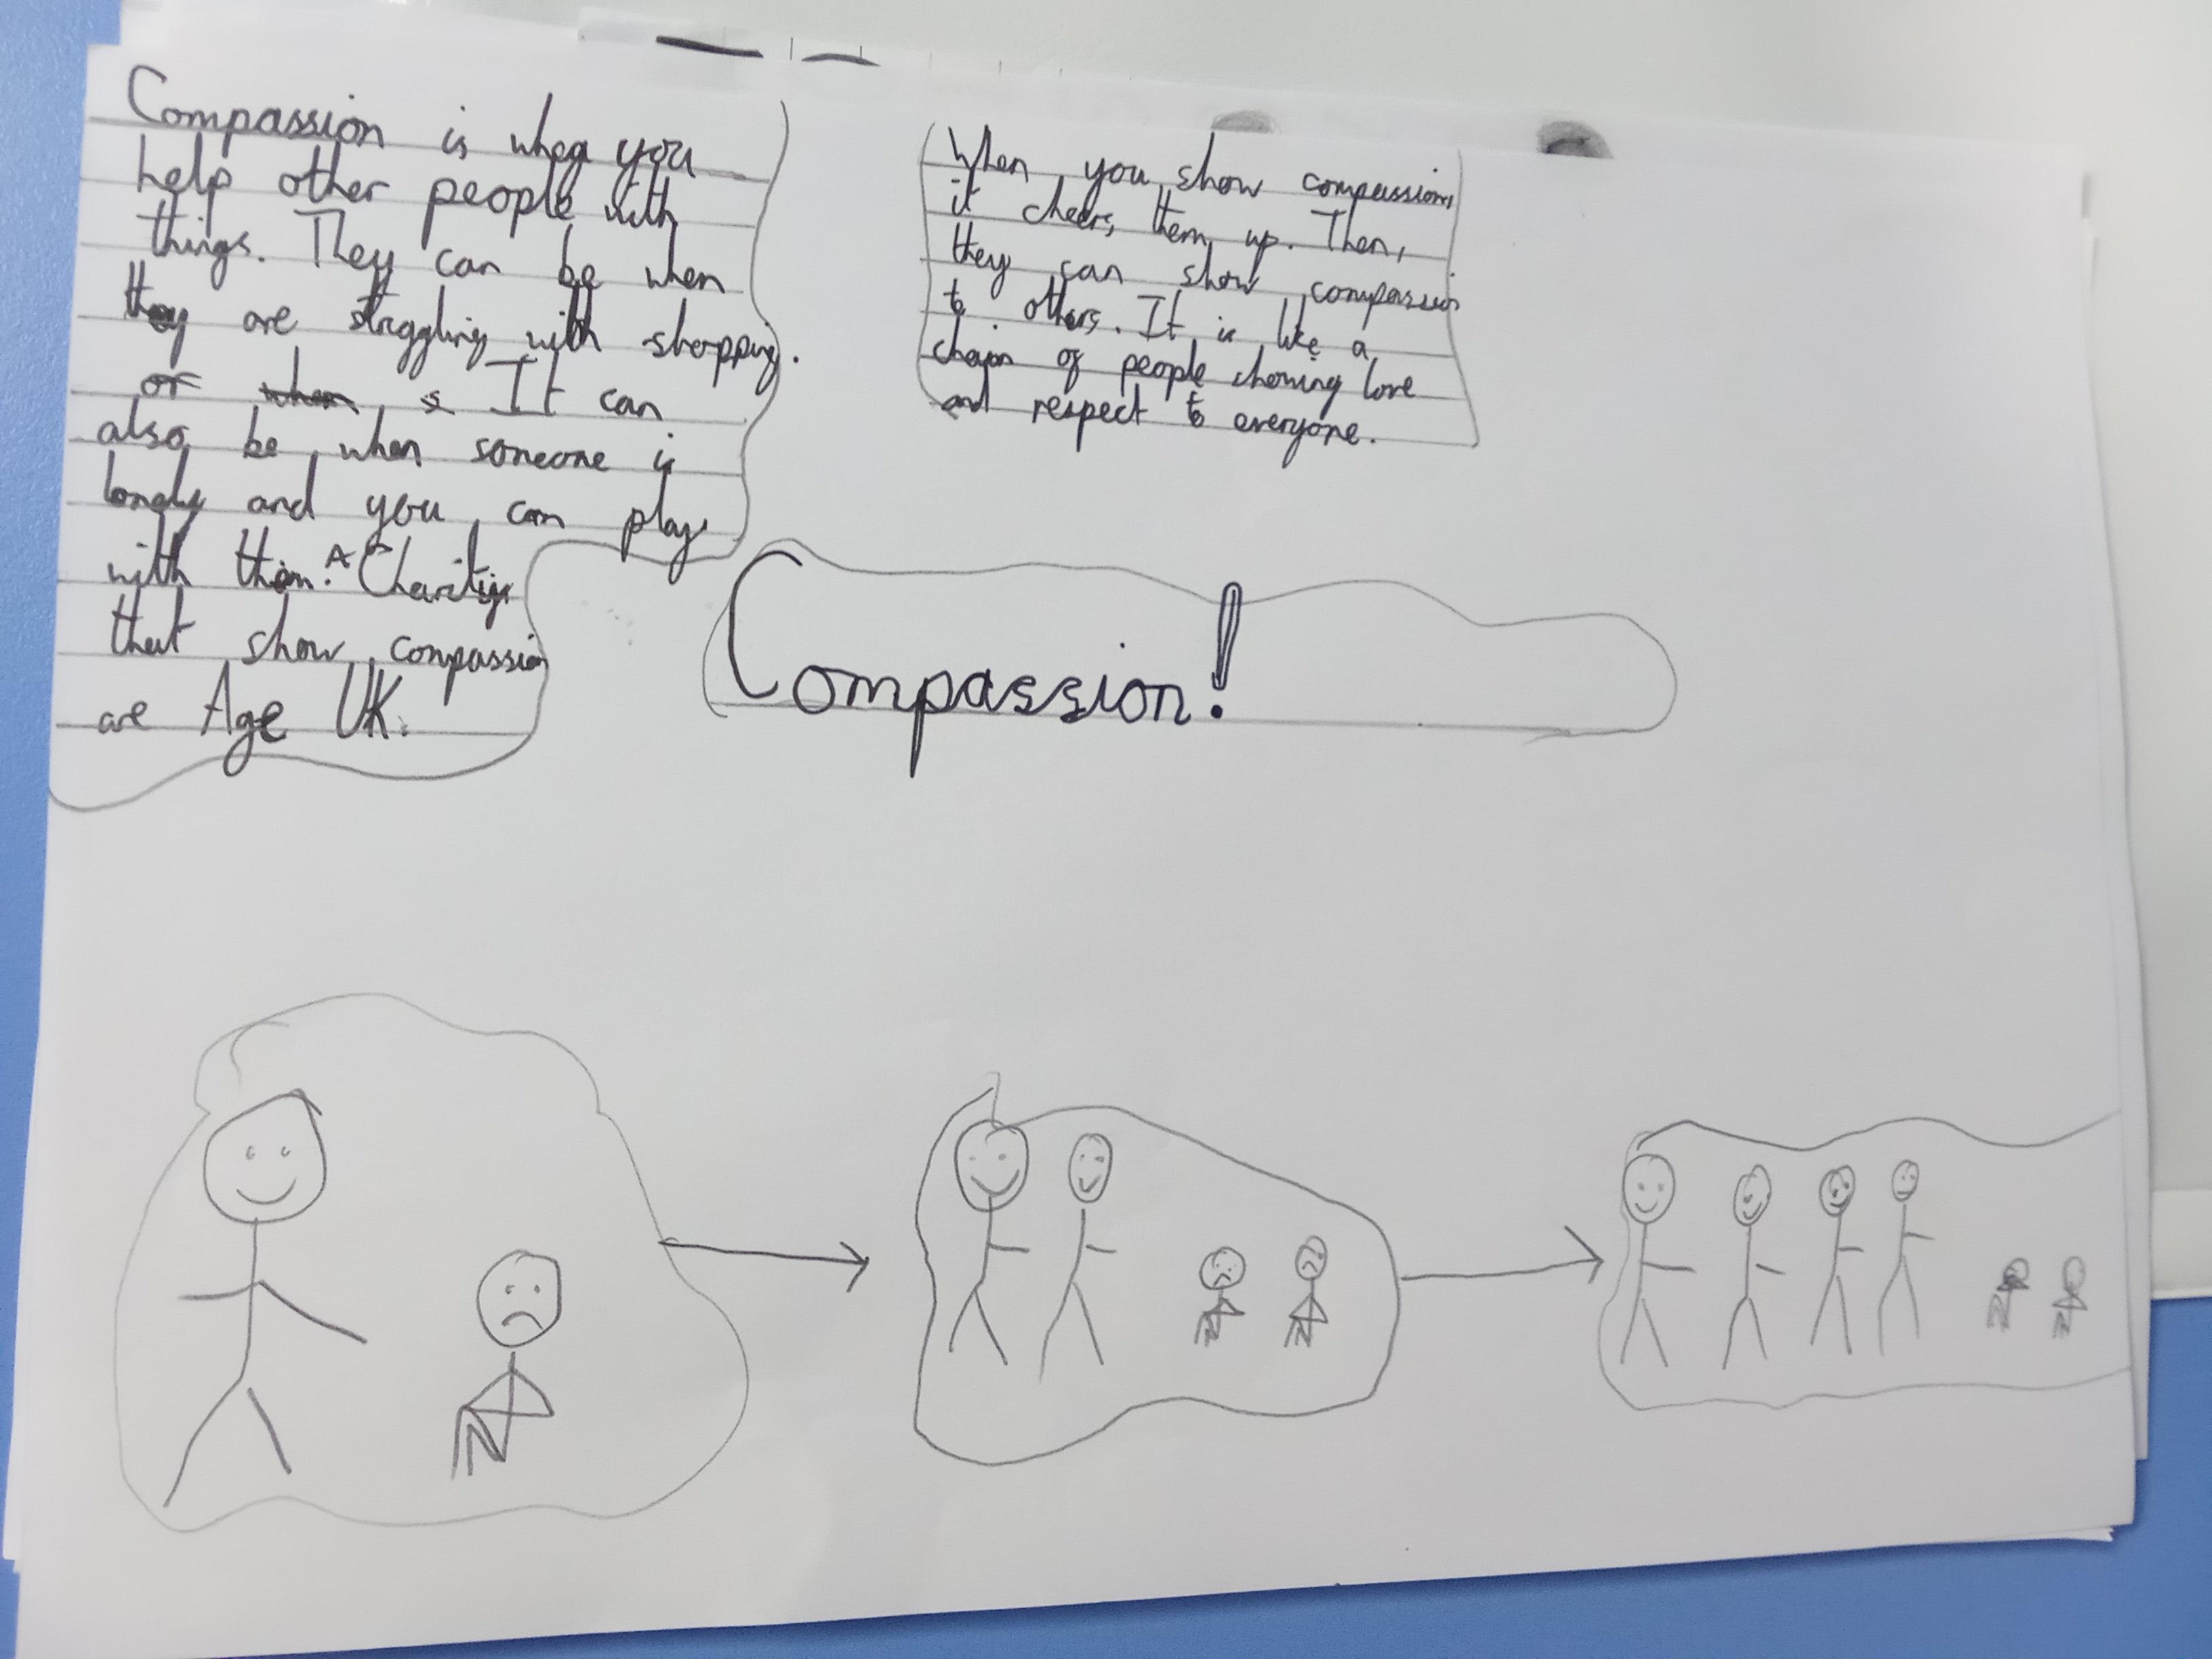 Compassion is when you
help other people with
things. They can be when
they are struggling with shopping.
or when s It can
also be when someone is
lonely and you can play
with them. A Charities
that show compassion
are Age UK.
When you show compassion,
it cheers them up. Then,
they can show compassion
to others. It is like a
chain of people showing love
and respect to everyone.
Compassion!